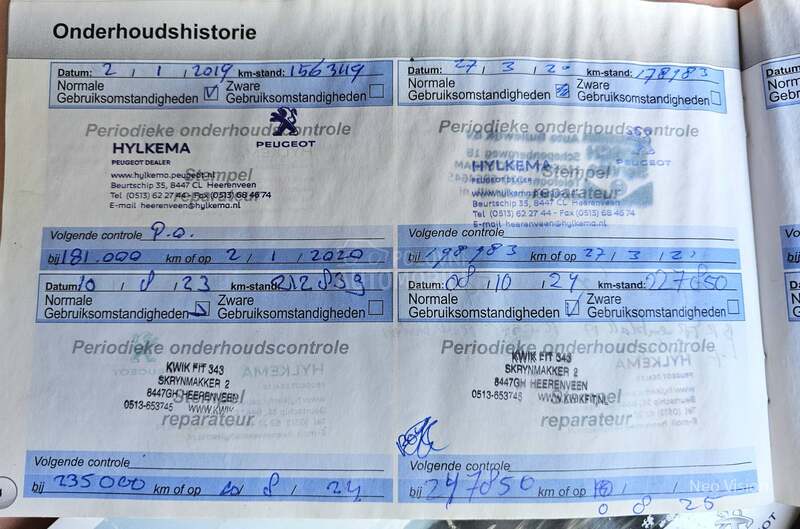 Onderhoudshistorie
Datum: 2 / 1 / 2019 km-stand: 156349
Normale Gebruiksomstandigheden Zware Gebruiksomstandigheden
Periodieke onderhoudscontrole
HYLKEMA
PEUGEOT DEALER
PEUGEOT
www.hylkema.peugeot.nl
Stempel
Beurtschip 35, 8447 CL Heerenveen
Tel (0513) 62 27 44 - Fax (0513) 68 46 74
E-mail heerenveen@hylkema.nl
reparateur
Volgende controle P.O.
bij 181.000 km of op 2 / 1 / 2020
Datum: 27 / 3 / 20 km-stand: 178983
Normale Gebruiksomstandigheden Zware Gebruiksomstandigheden
Periodieke onderhoudscontrole
HYLKEMA
PEUGEOT DEALER
PEUGEOT
Stempel
Beurtschip 35, 8447 CL Heerenveen
Tel (0513) 62 27 44 - Fax (0513) 68 46 74
E-mail heerenveen@hylkema.nl
reparateur
Volgende controle
bij 198983 km of op 27 / 3 / 2
Datum: 10 / 8 / 23 km-stand: 212839
Normale Gebruiksomstandigheden Zware Gebruiksomstandigheden
Periodieke onderhoudscontrole
KWIK FIT 343
SKRYNMAKKER 2
8447GH HEERENVEEN
0513-653745 WWW.KWIK
Stempel
reparateur
Volgende controle
bij 235000 km of op 10 / 8 / 24
Datum: 08 / 10 / 24 227850
Normale Gebruiksomstandigheden Zware Gebruiksomstandigheden
Periodieke onderhoudscontrole
KWIK FIT 343
SKRYNMAKKER 2
8447GH HEERENVEEN
0513-653745 WWW.KWIKFIT.NL
Stempel
reparateur
Volgende controle
bij 247850 km of op
0 8 25